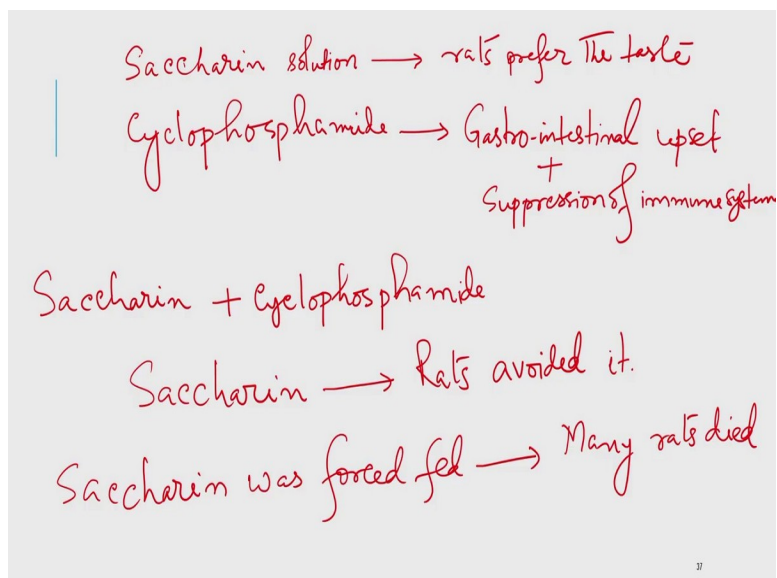 Saccharin solution → rats prefer the taste
Cyclophosphamide → Gastro-intestinal upset
+
Suppression of immune system
Saccharin + Cyclophosphamide
Saccharin → Rats avoided it.
Saccharin was forced fed → Many rats died
37